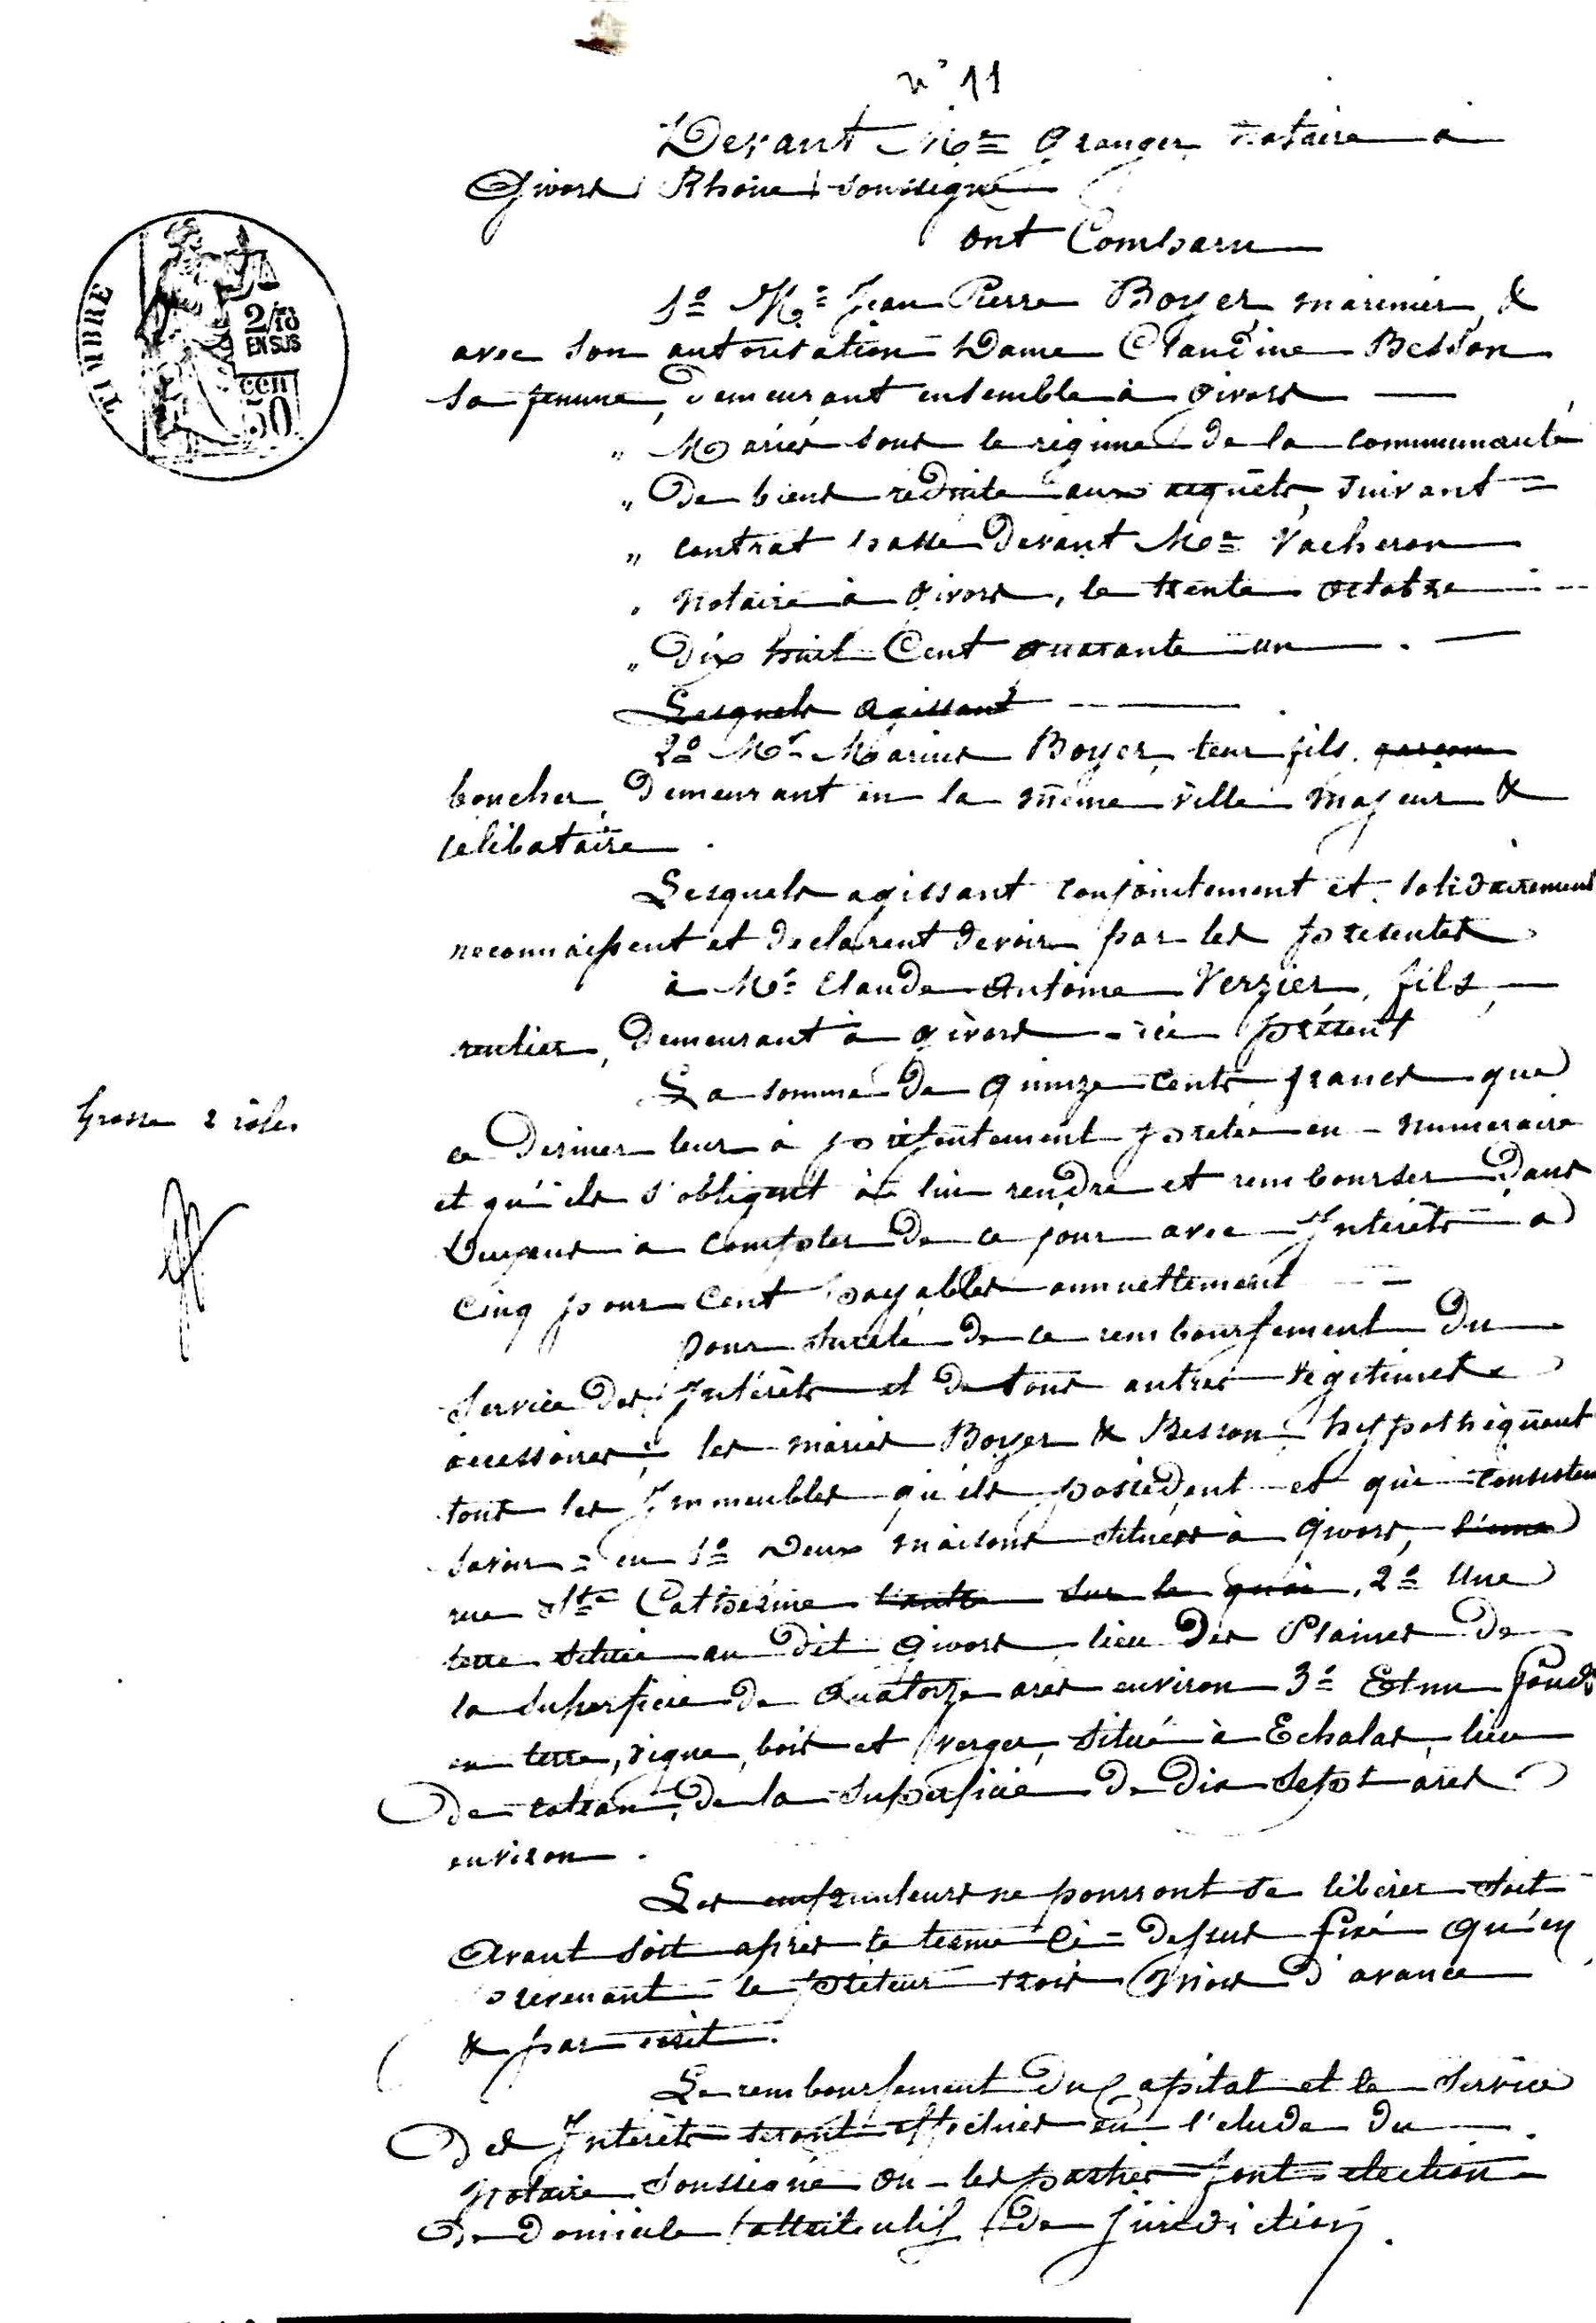 n° 11
Devant Me Granger notaire à
Givors Rhône soussigné
ont Comparu
1° Mr Jean Pierre Boyer marinier, &
avec son autorisation Dame Claudine Besson
sa femme, demeurant ensemble à Givors
TIMBRE
2/10
EN SUS
50
CEN
" Mariés sous le régime de la communauté
" De biens réduite aux acquêts, suivant =
" contrat passé devant Me Vacheron
" notaire à Givors, le trente octobre
" dix huit Cent quarante un
Lesquels agissant
2° Mr Marius Boyer, leur fils, garçon
boucher, demeurant en la même ville majeur &
célibataire.
Lesquels agissant conjointement et solidairement
reconnaissent et declarent devoir par les presentes
à Mr Claude Antoine Verzier, fils,
rentier, demeurant à Givors ici présent
La somme de quinze cents francs que
ce dernier leur à présentement prêtée en numeraire
et qu'ils s'obligent à lui rendre et rembourser dans
deux ans à compter de ce jour avec Intérêts à
cinq pour Cent payables annuellement
Grosse 2 rôles
pour sureté de ce remboursement du
service des Intérêts et de tous autres légitimes
accessoires, les mariés Boyer & Besson hypothèquent
tous les Immeubles qu'ils possèdent et qui consistent
savoir = en 1° Deux maisons situées à Givors, l'une
rue Ste Catherine l'autre sur le quai, 2° Une
terre située au dit Givors lieu des Plaines de
la superficie de quatorze ares environ 3° Et un fonds
en terre, vigne, bois et verger, situé à Echalas, lieu
de de la superficie de dix sept ares
environ.
Les emprunteurs ne pourront se libérer soit
avant soit après le terme ci = dessus fixé qu'en
prevenant le prêteur trois mois d'avance
& par écrit.
Le remboursement du Capital et le service
des Intérêts seront effectués en l'etude du
notaire soussigné où les parties font election
de domicile attributif de juridiction.